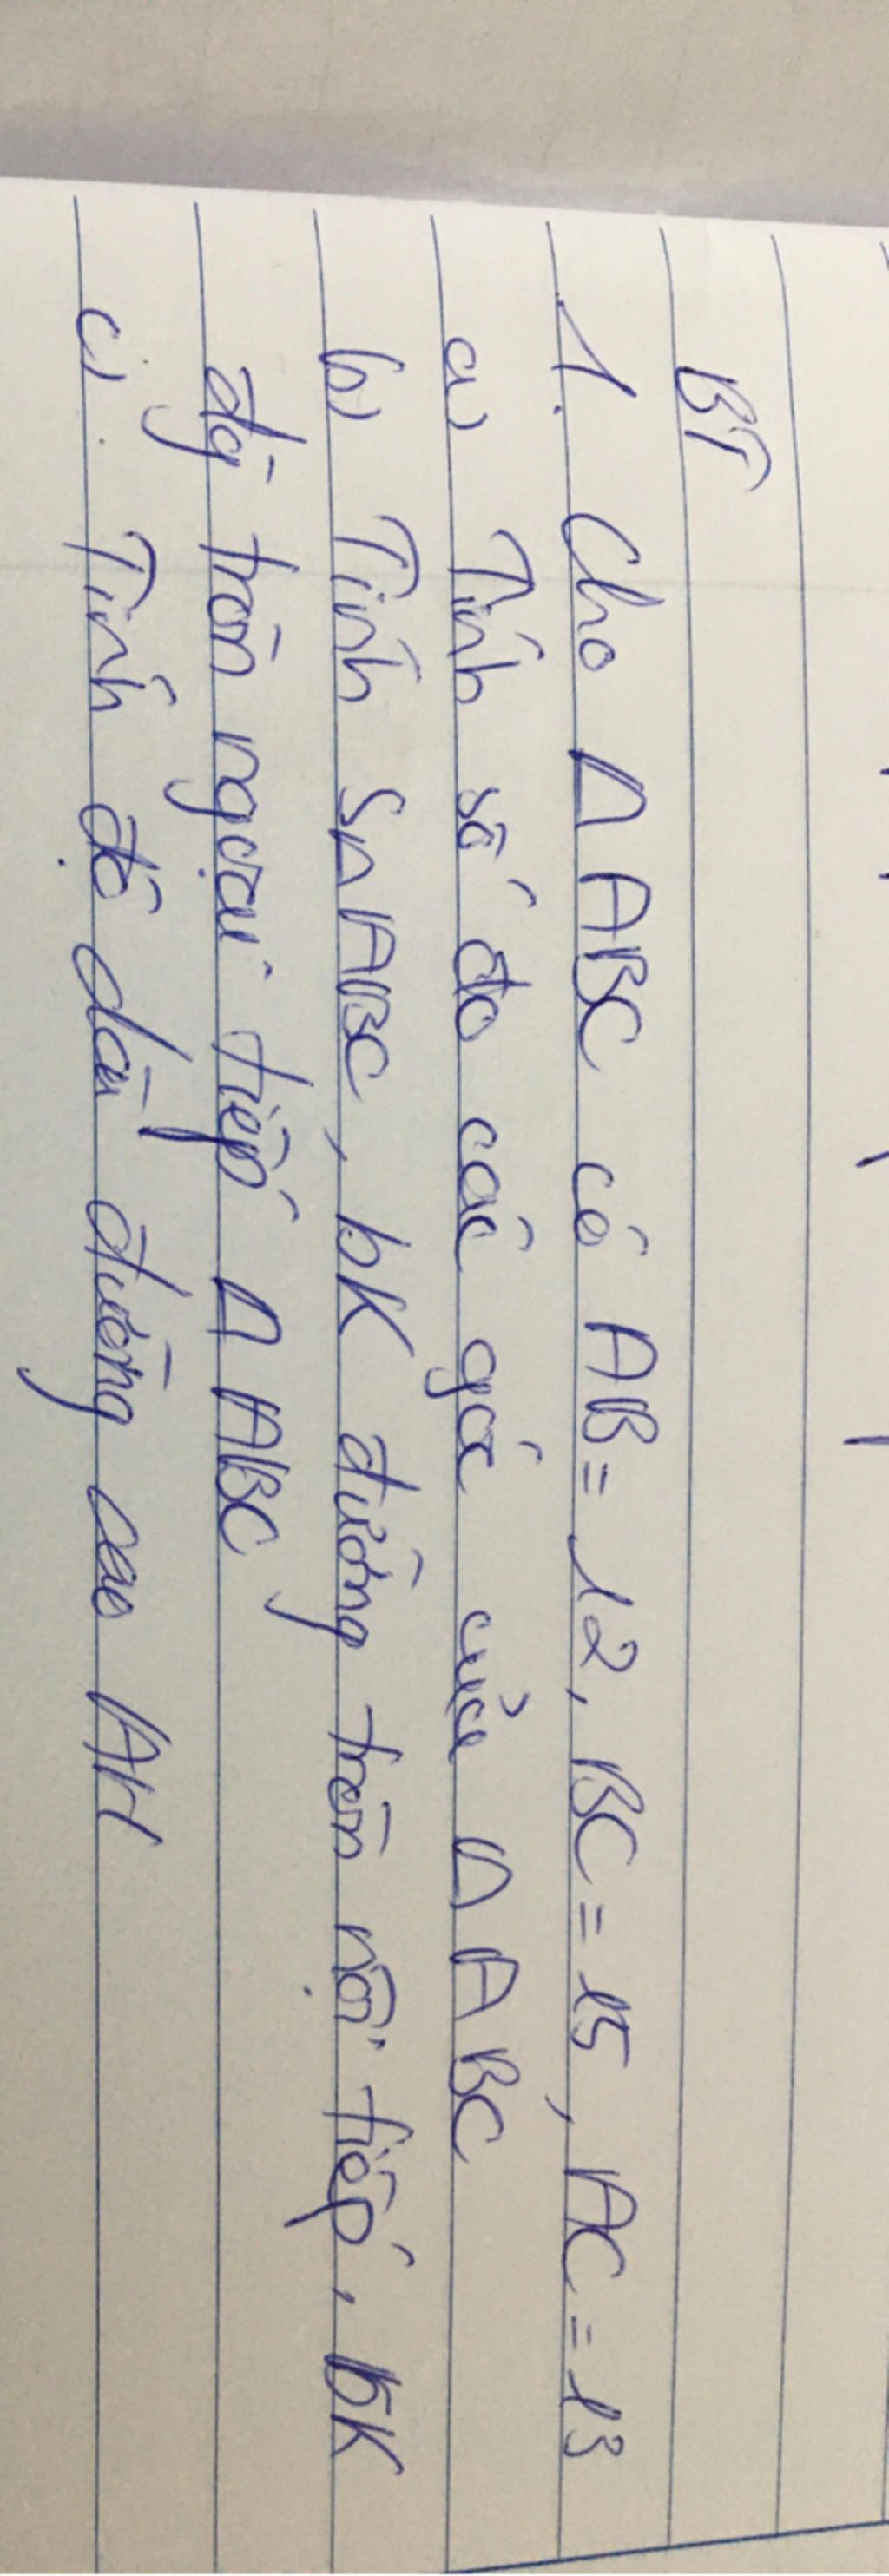 BT
1. Cho Δ ABC có AB = 12, BC = 15, AC = 13
a) Tính số đo các góc của Δ ABC
b) Tính SΔABC, bK đường tròn nội tiếp, bK
đg tròn ngoại tiếp Δ ABC
c) Tính độ dài đường cao AH